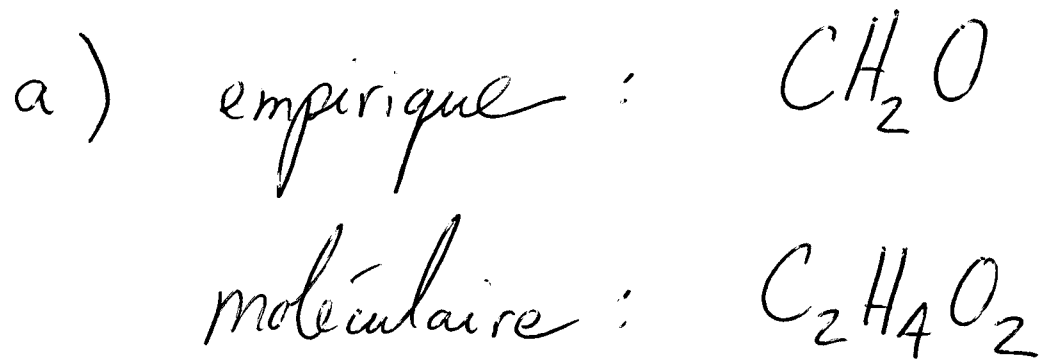 a) empirique : CH₂O
moléculaire : C₂H₄O₂